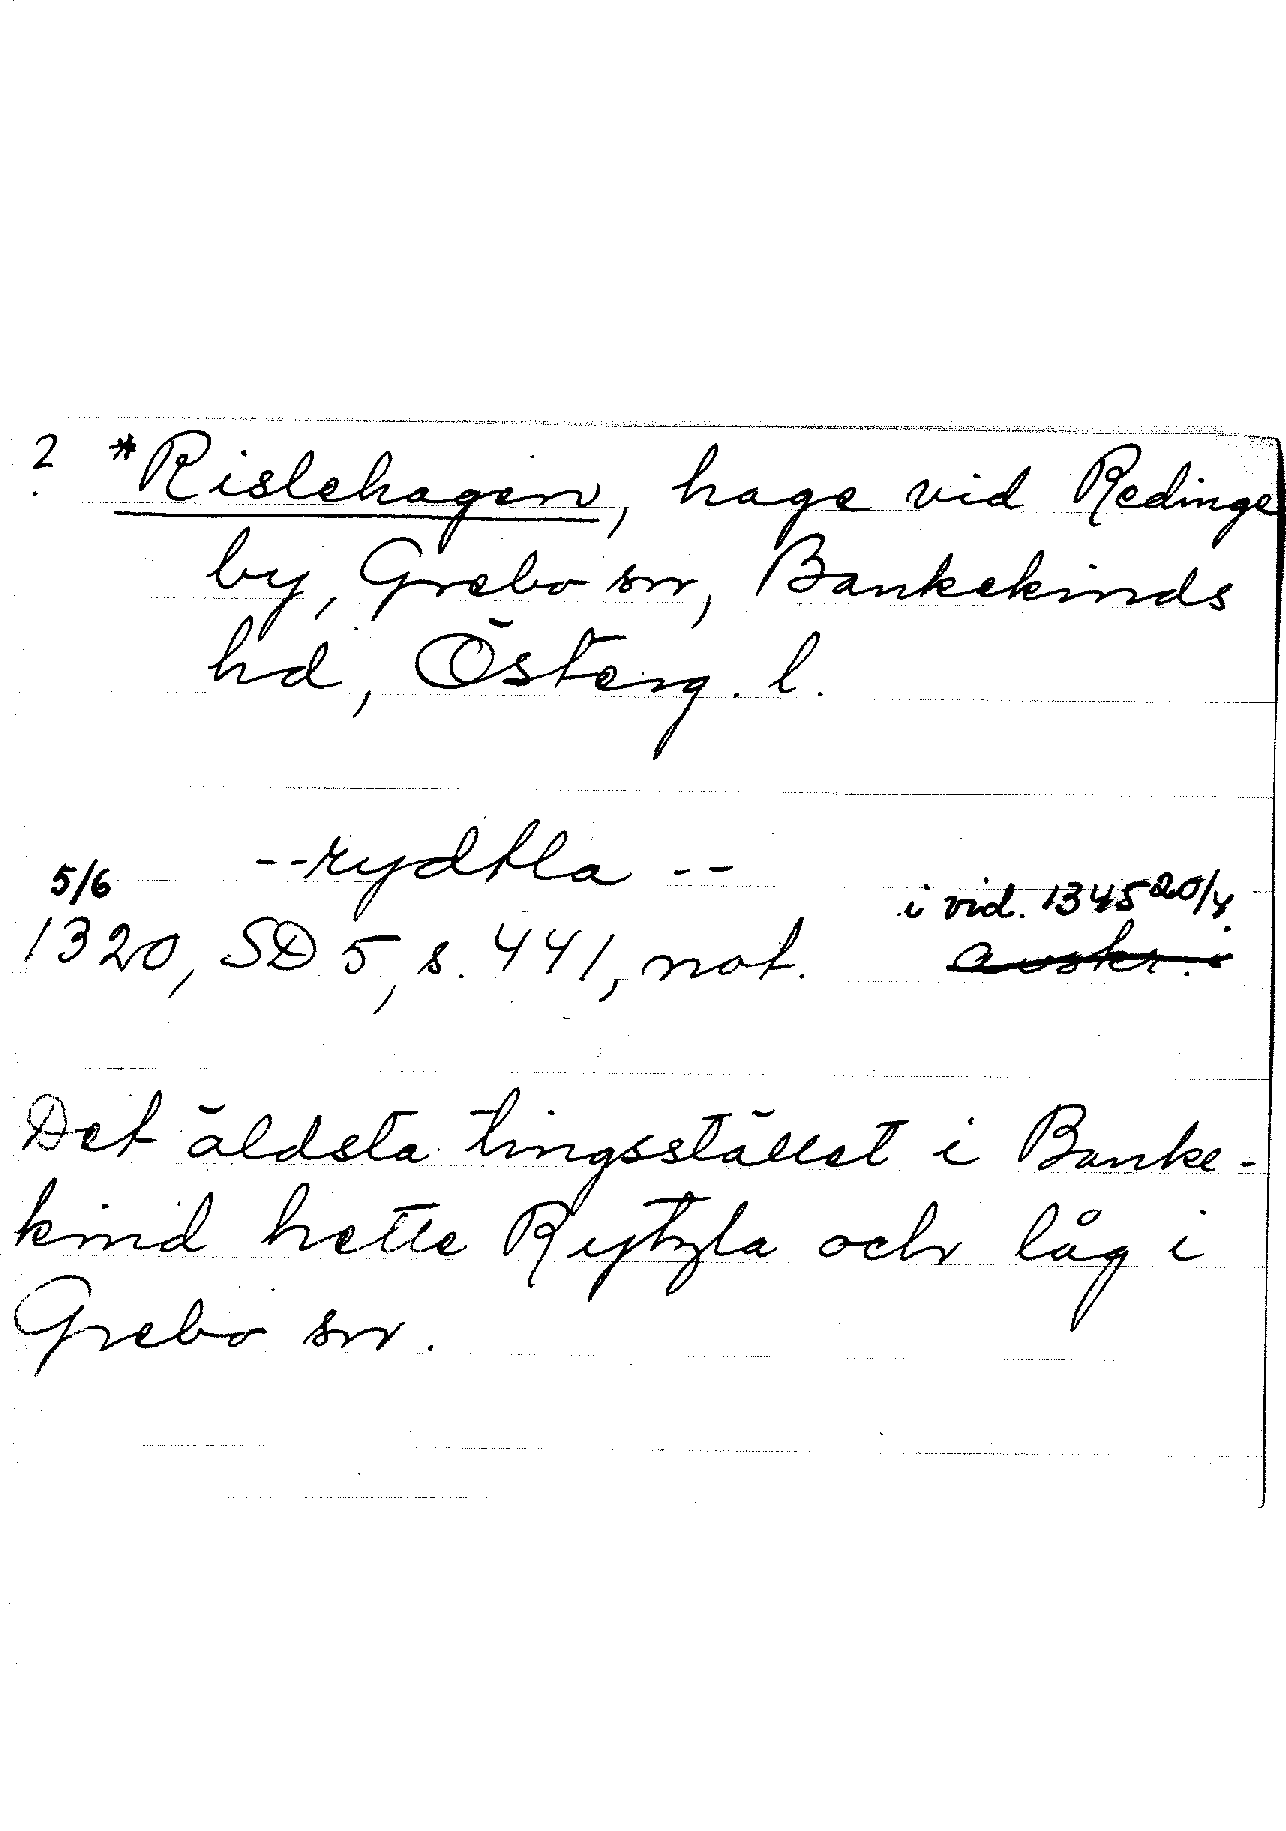 ? *Rislehagen, hage vid Redinge
by, Grebo sn, Bankekinds
hd, Österg. l.
--rydtla --
5/6
i vid. 1345 20/4.
1320, SD 5, s. 441, not. avskr. i
Det äldsta tingsstället i Banke-
kind hette Rytzla och låg i
Grebo sn.